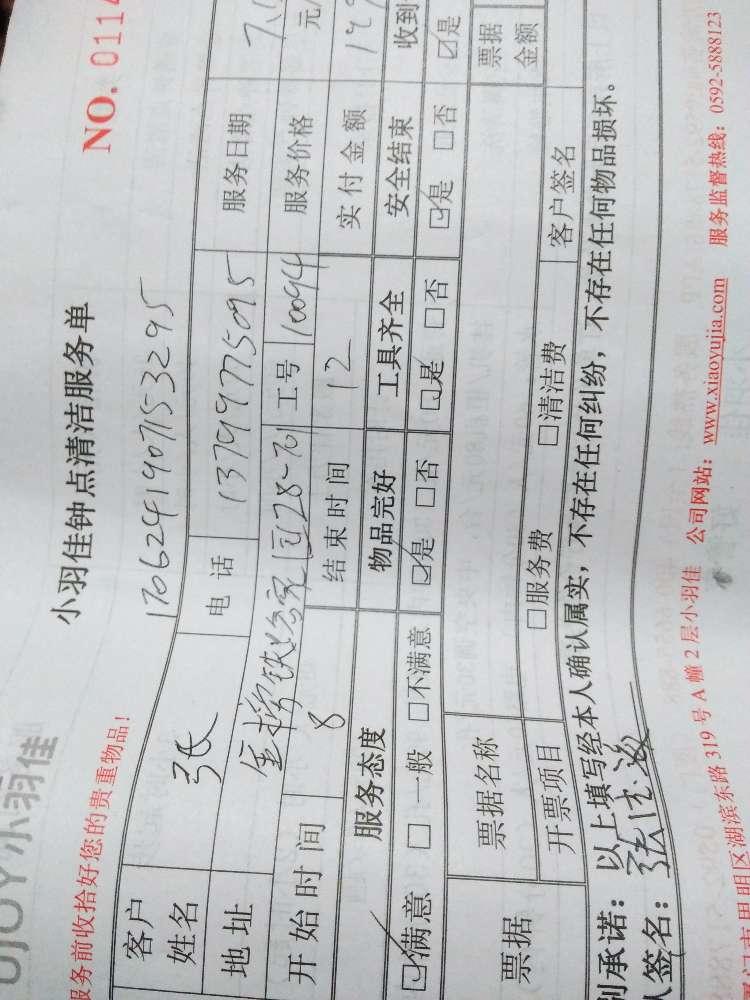 UJOY小羽佳
服务前收拾好您的贵重物品!
小羽佳钟点清洁服务单
NO. 0114
17062419071 53295
客户姓名 张 电话 13799775095 服务日期 7.1
地址 28-701 工号 10094 服务价格 元/
开始时间 8 结束时间 12 实付金额
服务态度 物品完好 工具齐全 安全结束 收到
☑满意 □一般 □不满意 ☑是 □否 ☑是 □否 ☑是 □否 ☑是
票据 票据名称 票据金额
开票项目 □服务费 □清洁费 客户签名
别承诺:以上填写经本人确认属实,不存在任何纠纷,不存在任何物品损坏。
人签名:张
门市思明区湖滨东路 319 号 A 幢 2 层小羽佳 公司网站:www.xiaoyujia.com 服务监督热线:0592-5888123